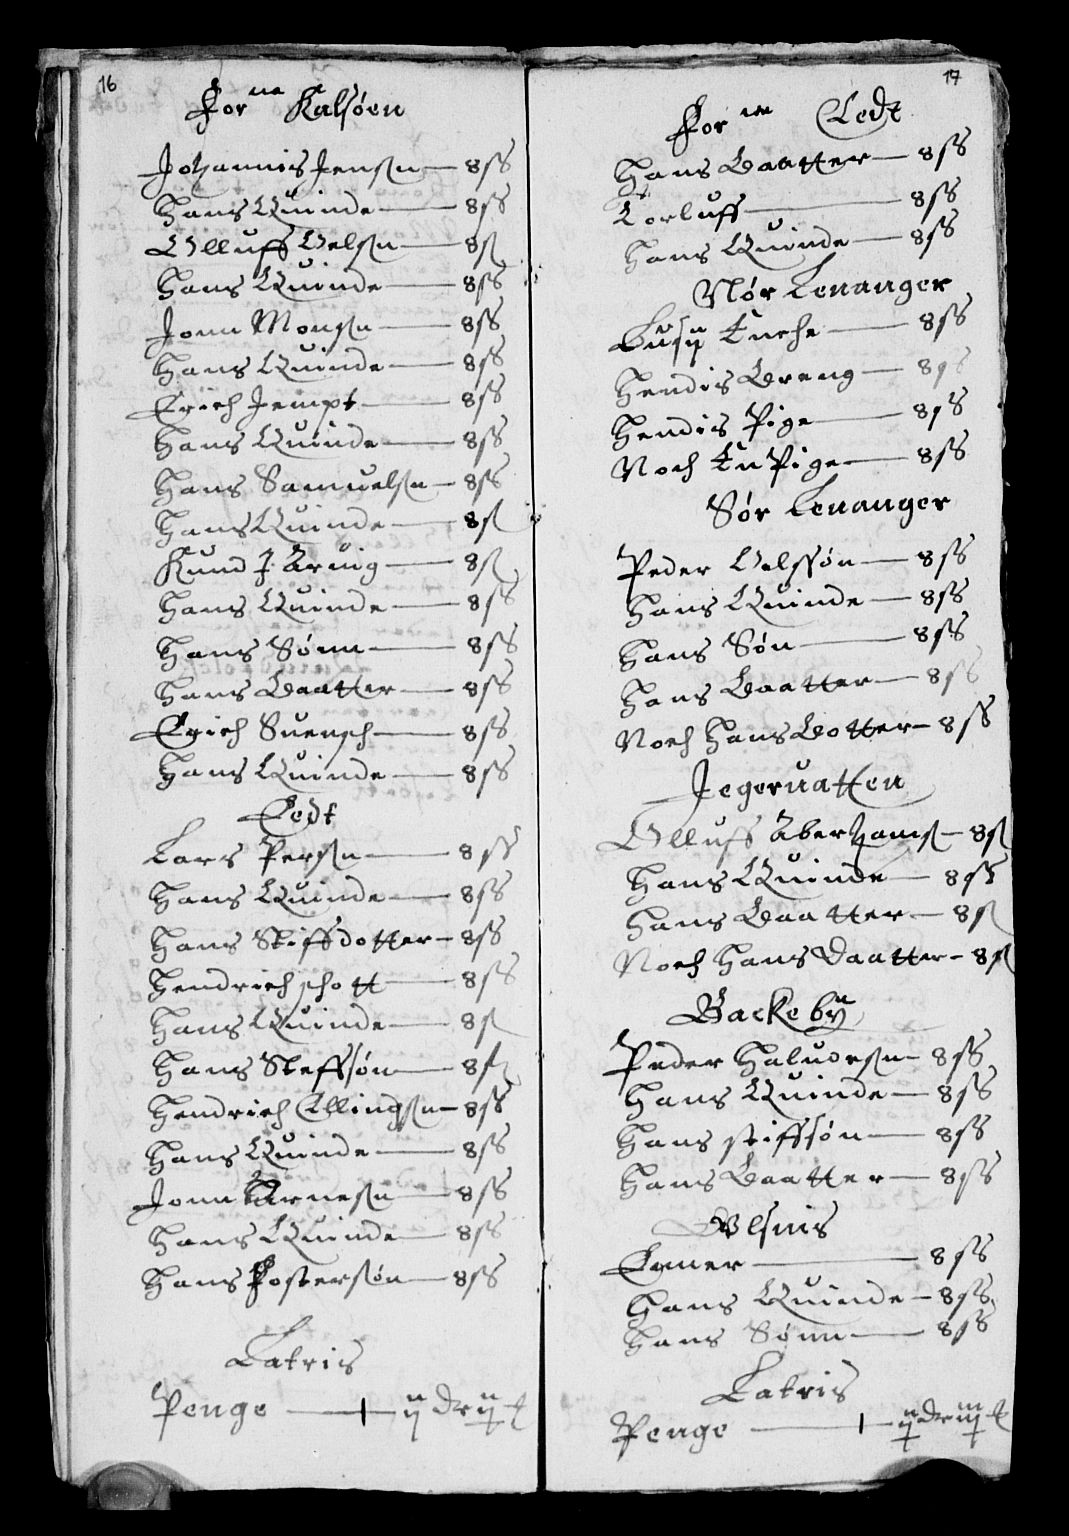 16
For ne Kalsøen
Johannis Jensßn — 8 sß
Hans Quinde — 8 sß
Olluff Oelsßn — 8 ß
Hans Quinde — 8 sß
Jonn Monsßn — 8 sß
Hans Quinde — 8 sß
Erich Jempt — 8 sß
Hans Quinde — 8 sß
Hans Samuelsßn — 8 sß
Hans Quinde — 8 ß
Knud J. Äring — 8 ß
Hans Quinde — 8 sß
Hans Sønn — 8 sß
Hans Daatter — 8 sß
Erich Suensch — 8 sß
Hans Quinde — 8 sß
Eedt
Lars Persßn — 8 sß
Hans Quinde — 8 sß
Hans Stiffdotter — 8 sß
Hendrich schott — 8 sß
Hans Quinde — 8 ß
Hans Steffsøn — 8 ß
Hendrich Ellingsßn — 8 sß
Hans Quinde — 8 sß
Jonn Arnesßn — 8 sß
Hans Quinde — 8 sß
Hans Fostersøn — 8 sß
Latris
Penge — ij dr
17
For ne Eedt
Hans Daatter — 8 sß
Torluff — 8 sß
Hans Quinde — 8 sß
Nør Lenanger
Hendis Dreng — 8 sß
Hendis Pige — 8 sß
Noch En Pige — 8 sß
Sør Lenanger
Peder Oelssøn — 8 sß
Hans Quinde — 8 sß
Hans Søn — 8 sß
Hans Daatter — 8 sß
Noch Hans Dotter — 8 sß
Jegeruatten
Olluff Aberhams — 8 ß
Hans Quinde — 8 sß
Hans Daatter — 8 ß
Noch Hans Daatter — 8 ß
Backeby
Peder Haluorsßn — 8 sß
Hans Quinde — 8 sß
Hans stiffsøn — 8 sß
Hans Daatter — 8 sß
Olsnis
Emer — 8 sß
Hans Quinde — 8 sß
Hans Sønn — 8 sß
Latris
Penge — dr